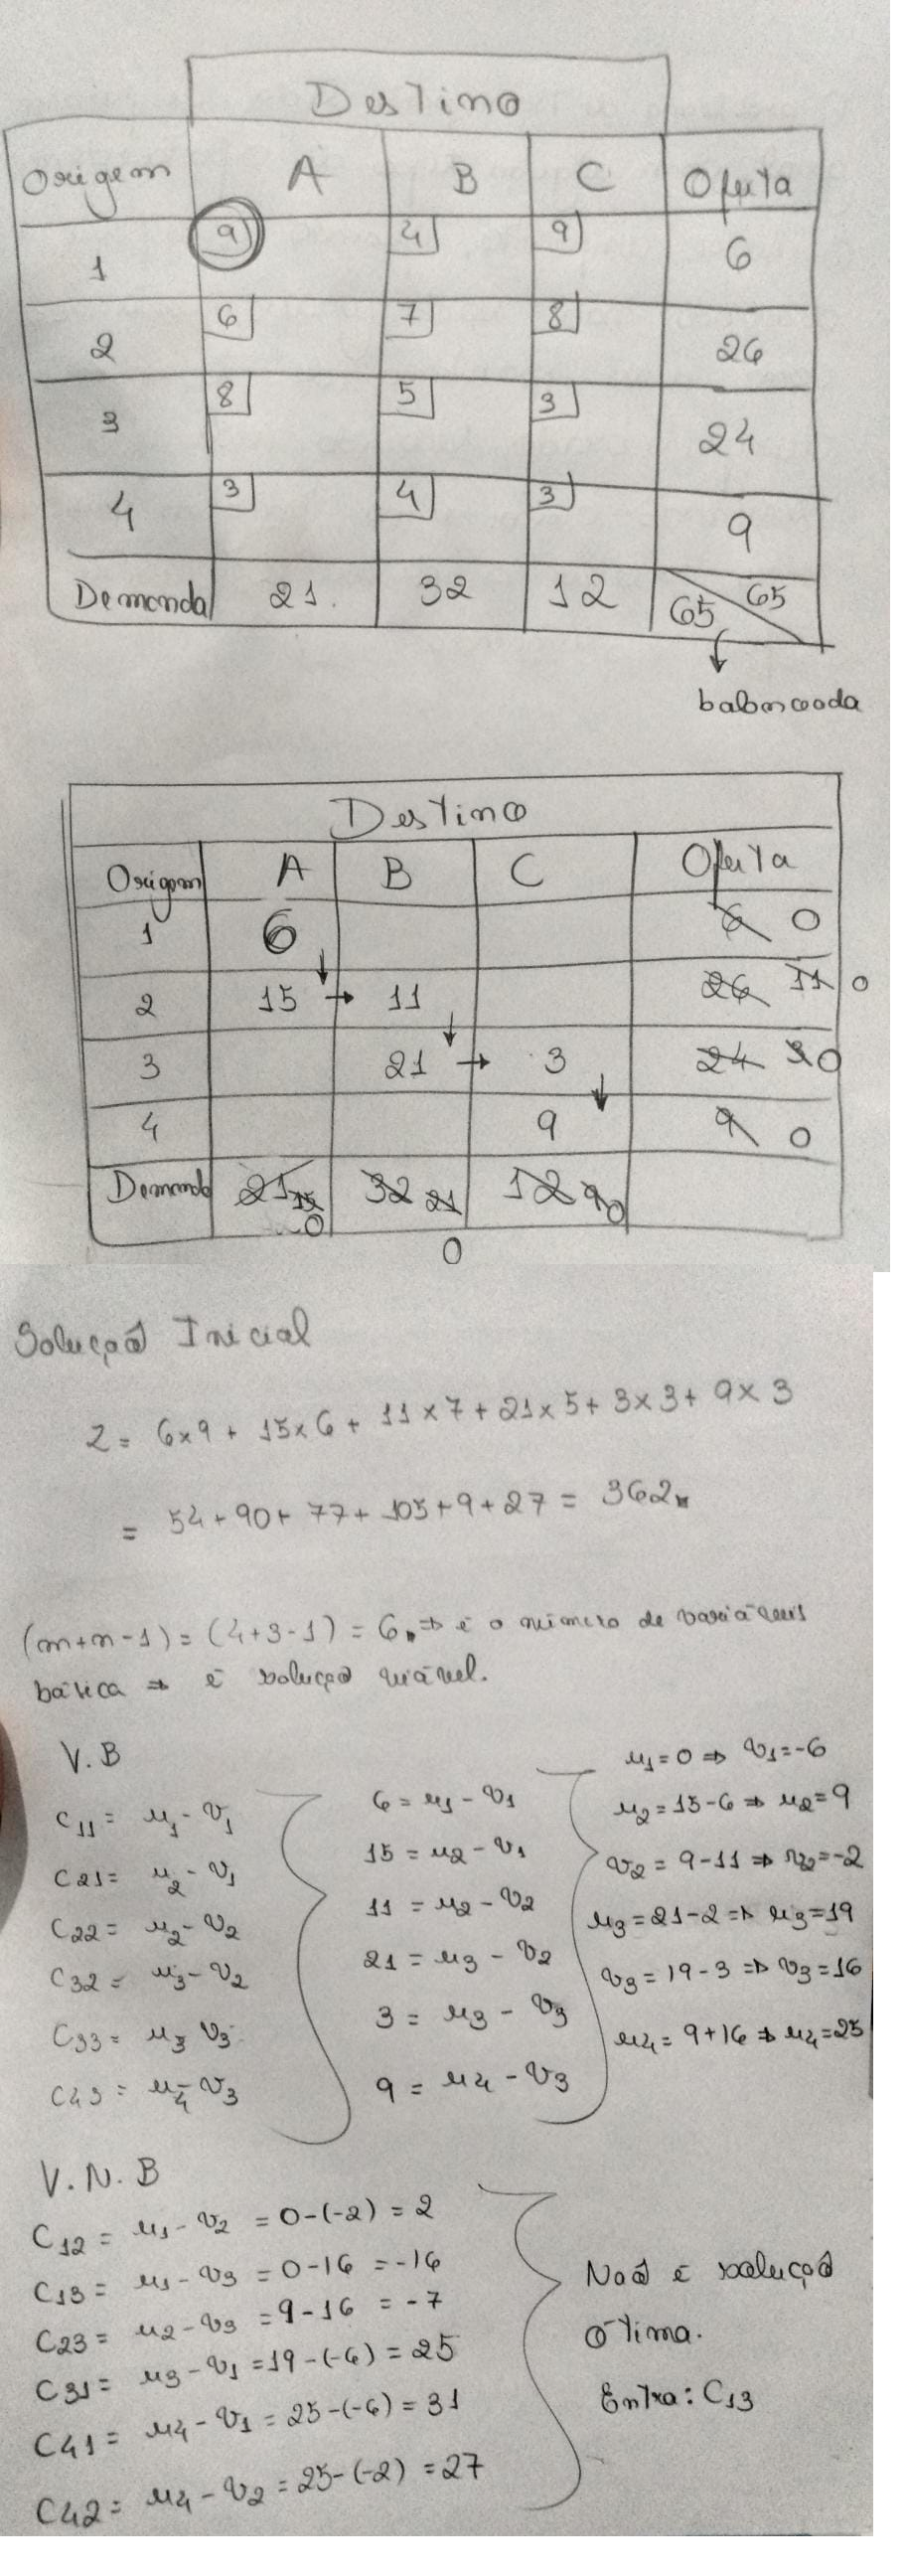 Destino
Origem A B C Oferta
1 9 4 9 6
2 6 7 8 26
3 8 5 3 24
4 3 4 3 9
Demanda 21 32 12 65 65
balanceada
Destino
Origem A B C Oferta
1 6 6 0
2 15 → 11 26 11 0
3 21 → 3 24 3 0
4 9 9 0
Demanda 21 15 0 32 21 0 12 9 0
Solução Inicial
Z = 6x9 + 15x6 + 11x7 + 21x5 + 3x3 + 9x3
= 54+90+77+105+9+27 = 362
(m+n-1) = (4+3-1) = 6 ⇒ é o número de variáveis
básica ⇒ é solução viável.
V.B
C11 = u1 - v1
C21 = u2 - v1
C22 = u2 - v2
C32 = u3 - v2
C33 = u3 v3
C43 = u4 - v3
6 = u1 - v1
15 = u2 - v1
11 = u2 - v2
21 = u3 - v2
3 = u3 - v3
9 = u4 - v3
u1=0 ⇒ v1=-6
u2=15-6 ⇒ u2=9
v2=9-11 ⇒ v2=-2
u3=21-2 ⇒ u3=19
v3=19-3 ⇒ v3=16
u4=9+16 ⇒ u4=25
V.N.B
C12 = u1 - v2 = 0-(-2) = 2
C13 = u1 - v3 = 0-16 = -16
C23 = u2 - v3 = 9-16 = -7
C31 = u3 - v1 = 19-(-6) = 25
C41 = u4 - v1 = 25-(-6) = 31
C42 = u4 - v2 = 25-(-2) = 27
Não é solução
ótima.
Entra: C13